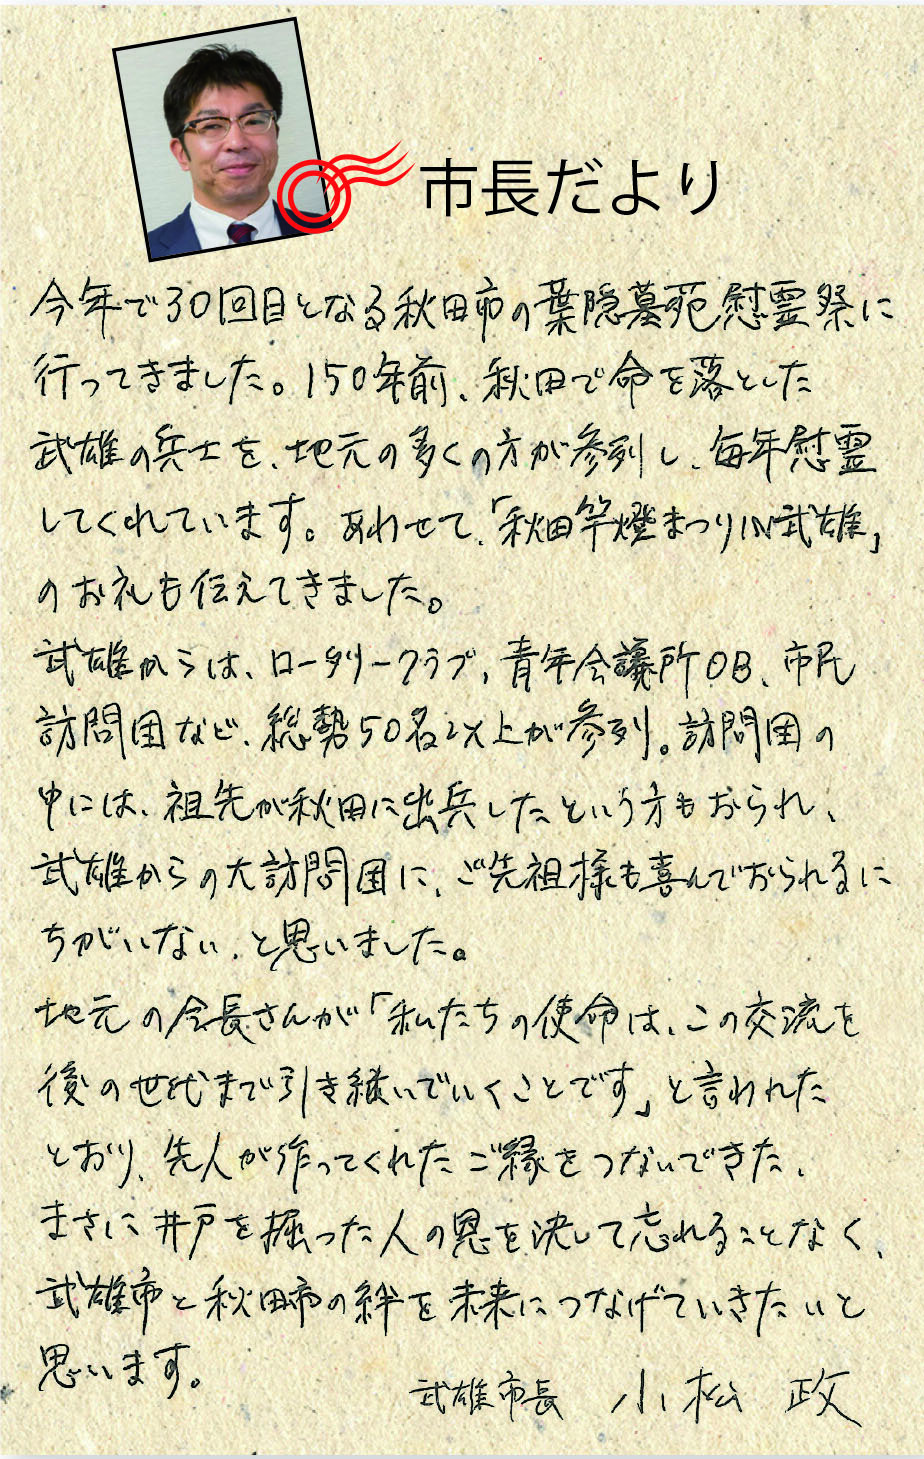 市長だより
今年で30回目となる秋田市の葉隠墓苑慰霊祭に
行ってきました。150年前、秋田で命を落とした
武雄の兵士を、地元の多くの方が参列し、毎年慰霊
してくれています。あわせて、「秋田竿燈まつりIN武雄」
のお礼も伝えてきました。
武雄からは、ロータリークラブ、青年会議所OB、市民
訪問団など、総勢50名以上が参列。訪問団の
中には、祖先が秋田に出兵したという方もおられ、
武雄からの大訪問団に、ご先祖様も喜んでおられるに
ちがいない、と思いました。
地元の会長さんが「私たちの使命は、この交流を
後の世代まで引き継いでいくことです」と言われた
とおり、先人が作ってくれたご縁をつないできた、
まさに井戸を掘った人の恩を決して忘れることなく、
武雄市と秋田市の絆を未来につなげていきたいと
思います。
武雄市長 小松 政